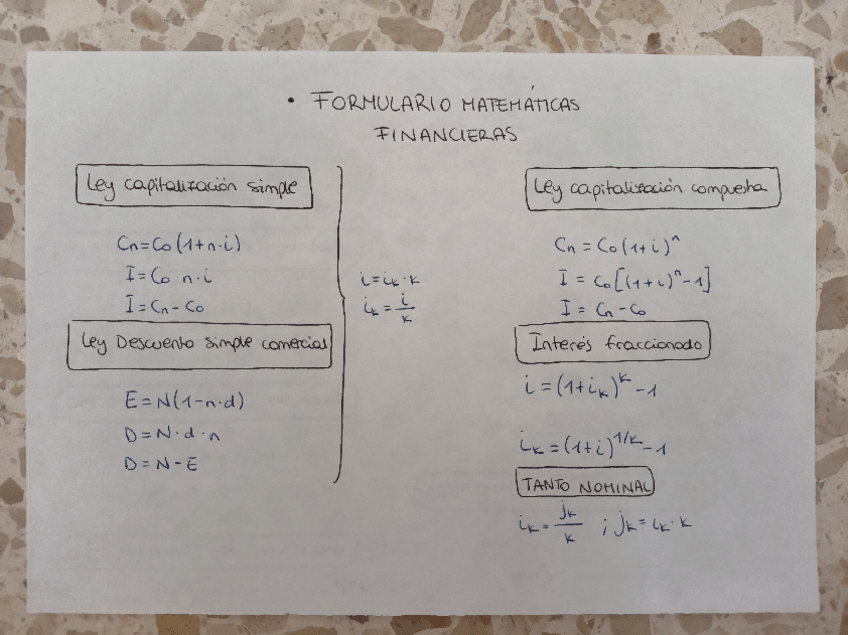 • FORMULARIO MATEMÁTICAS
FINANCIERAS
Ley capitalización simple
Cn=Co(1+n·i)
I=Co n·i
I=Cn-Co
Ley Descuento simple comercial
E=N(1-n·d)
D=N·d·n
D=N-E
i=iₖ·k
iₖ=i/k
Ley capitalización compuesta
Cn=Co(1+i)ⁿ
I=Co[(1+i)ⁿ-1]
I=Cn-Co
Interés fraccionado
i=(1+iₖ)ᵏ-1
iₖ=(1+i)^1/k-1
TANTO NOMINAL
iₖ=jₖ/k ; jₖ=iₖ·k